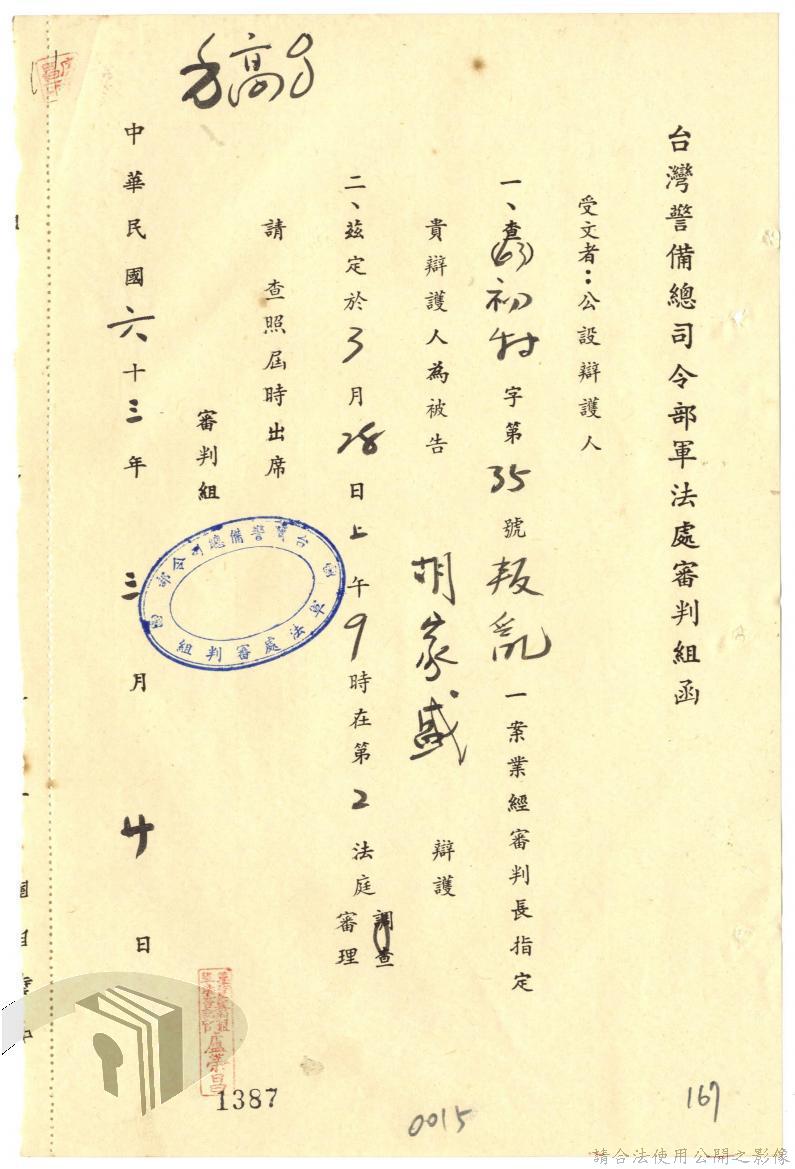 台灣警備總司令部軍法處審判組函
受文者：公設辯護人
一、查(63)初特字第35號叛亂一案業經審判長指定
貴辯護人為被告 胡家盛 辯護
二、茲定於3月28日上午9時在第2法庭調查審理
請 查照屆時出席
審判組
台灣警備總司令部
軍法處審判組
中華民國六十三年三月廿日
1387
0015
167
請合法使用公開之影像